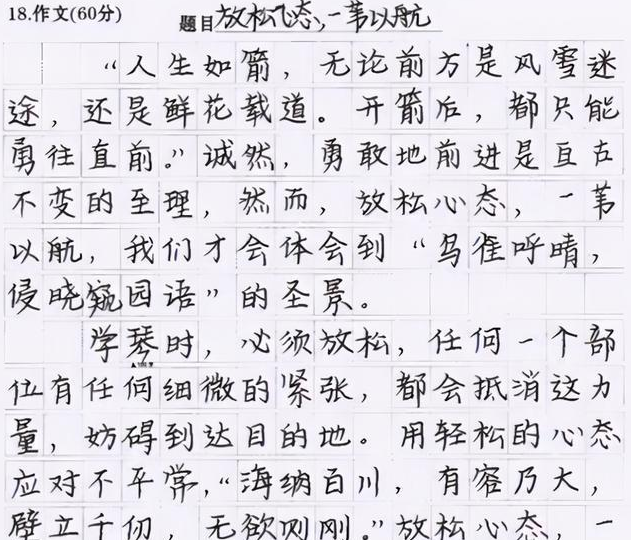 18.作文(60分) 题目 放松心态,一苇以航
“人生如箭，无论前方是风雪迷
途，还是鲜花载道。开箭后，都只能
勇往直前。”诚然，勇敢地前进是亘古
不变的至理，然而，放松心态，一苇
以航，我们才会体会到“鸟雀呼晴，
侵晓窥园语”的圣景。
学琴时，必须放松，任何一个部
位有任何细微的紧张，都会抵消这力
量，妨碍到达目的地。用轻松的心态
应对不平常，“海纳百川，有容乃大，
壁立千仞，无欲则刚。”放松心态，一